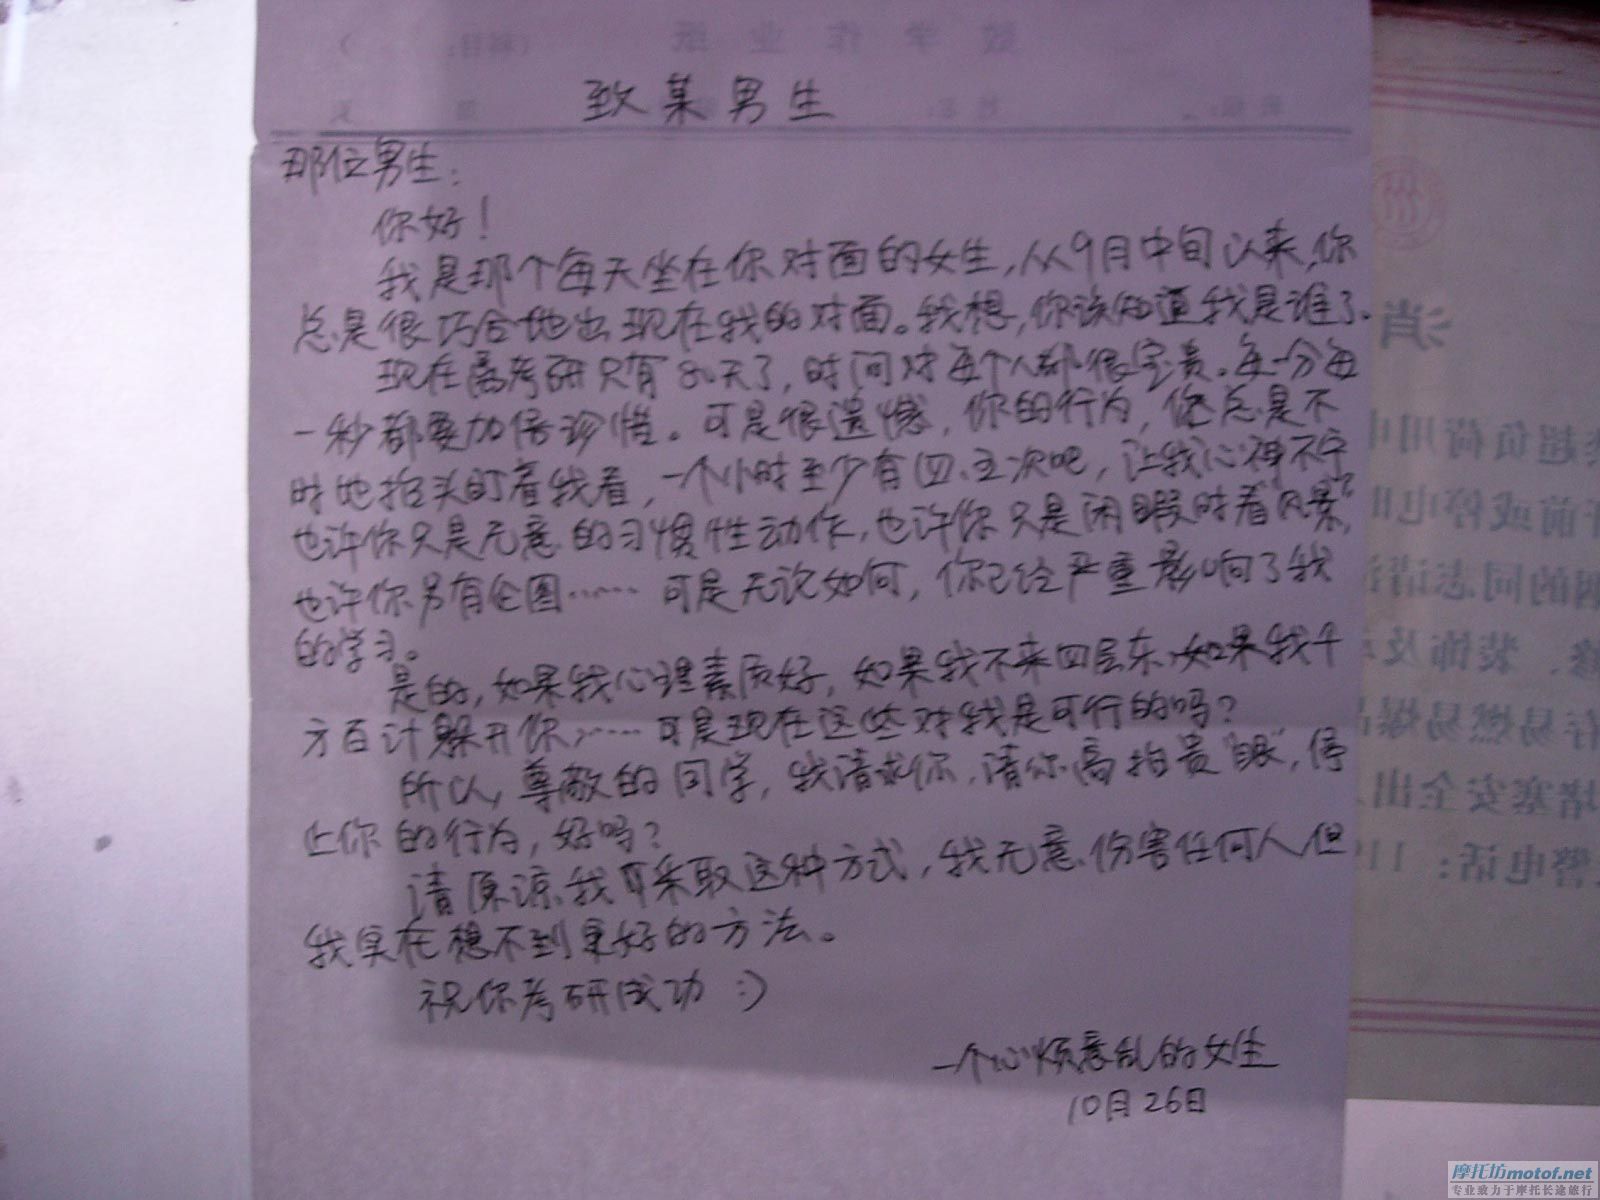 致某男生
那位男生：
你好！
我是那个每天坐在你对面的女生，从9月中旬以来，你
总是很巧合地出现在我的对面。我想，你该知道我是谁了。
现在离考研只有80天了，时间对每个人都很宝贵。每一分每
一秒都要加倍珍惜。可是很遗憾，你的行为，你总是不
时地抬头盯着我看，一个小时至少有四、五次吧，让我心神不宁
也许你只是无意的习惯性动作，也许你只是闲暇时看风景，
也许你另有企图……可是无论如何，你已经严重影响了我
的学习。
是的，如果我心理素质好，如果我不来四层东，如果我千
方百计躲开你，……可是现在这些对我是可行的吗？
所以，尊敬的同学，我请求你，请你高抬贵“眼”，停
止你的行为，好吗？
请原谅我采取这种方式，我无意伤害任何人但
我实在想不到更好的方法。
祝你考研成功 :)
一个心烦意乱的女生
10月26日
消
超负荷用电
前或停电时
的同志请
、装饰及
存易燃易爆品
堵塞安全出
警电话：119
摩托坊motof.net
专业致力于摩托长途旅行